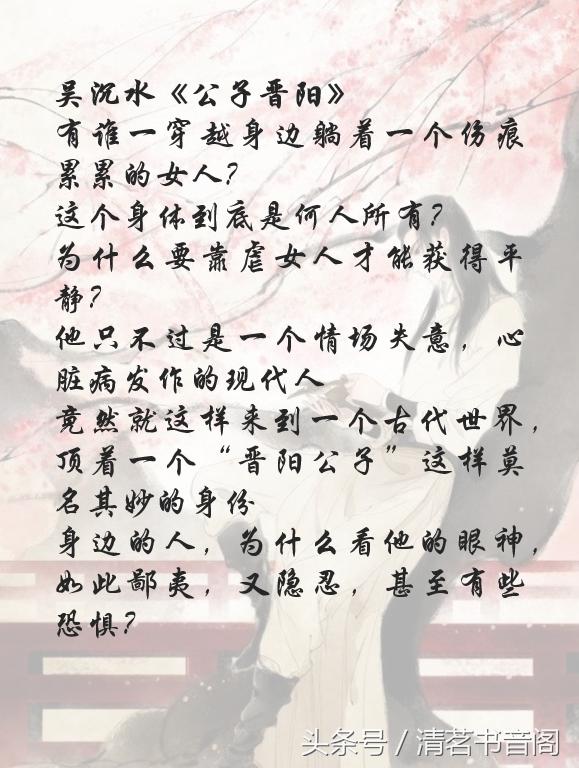 吴沉水《公子晋阳》
有谁一穿越身边躺着一个伤痕
累累的女人?
这个身体到底是何人所有?
为什么要靠虐女人才能获得平
静?
他只不过是一个情场失意，心
脏病发作的现代人
竟然就这样来到一个古代世界，
顶着一个“晋阳公子”这样莫
名其妙的身份
身边的人，为什么看他的眼神，
如此鄙夷，又隐忍，甚至有些
恐惧?
头条号 / 清茗书音阁